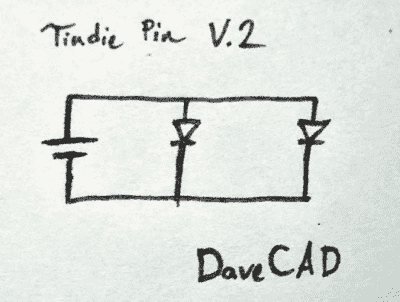 Tindie Pin V.2
DaveCAD